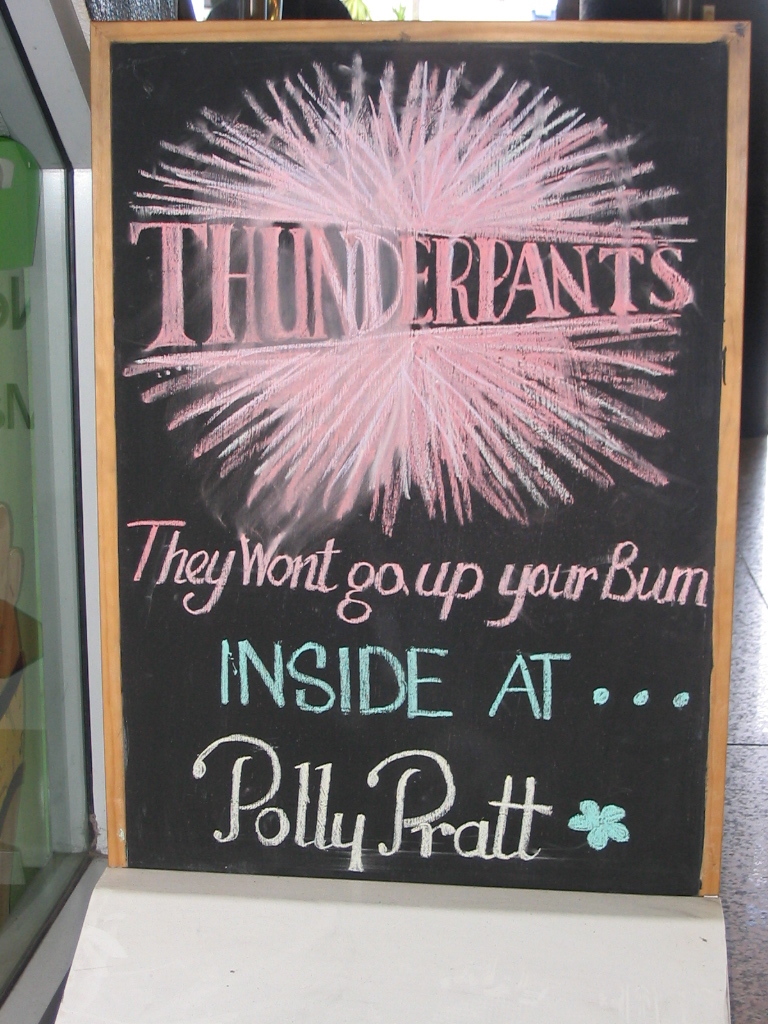 THUNDERPANTS
They Wont go up your Bum
INSIDE AT...
Polly Pratt